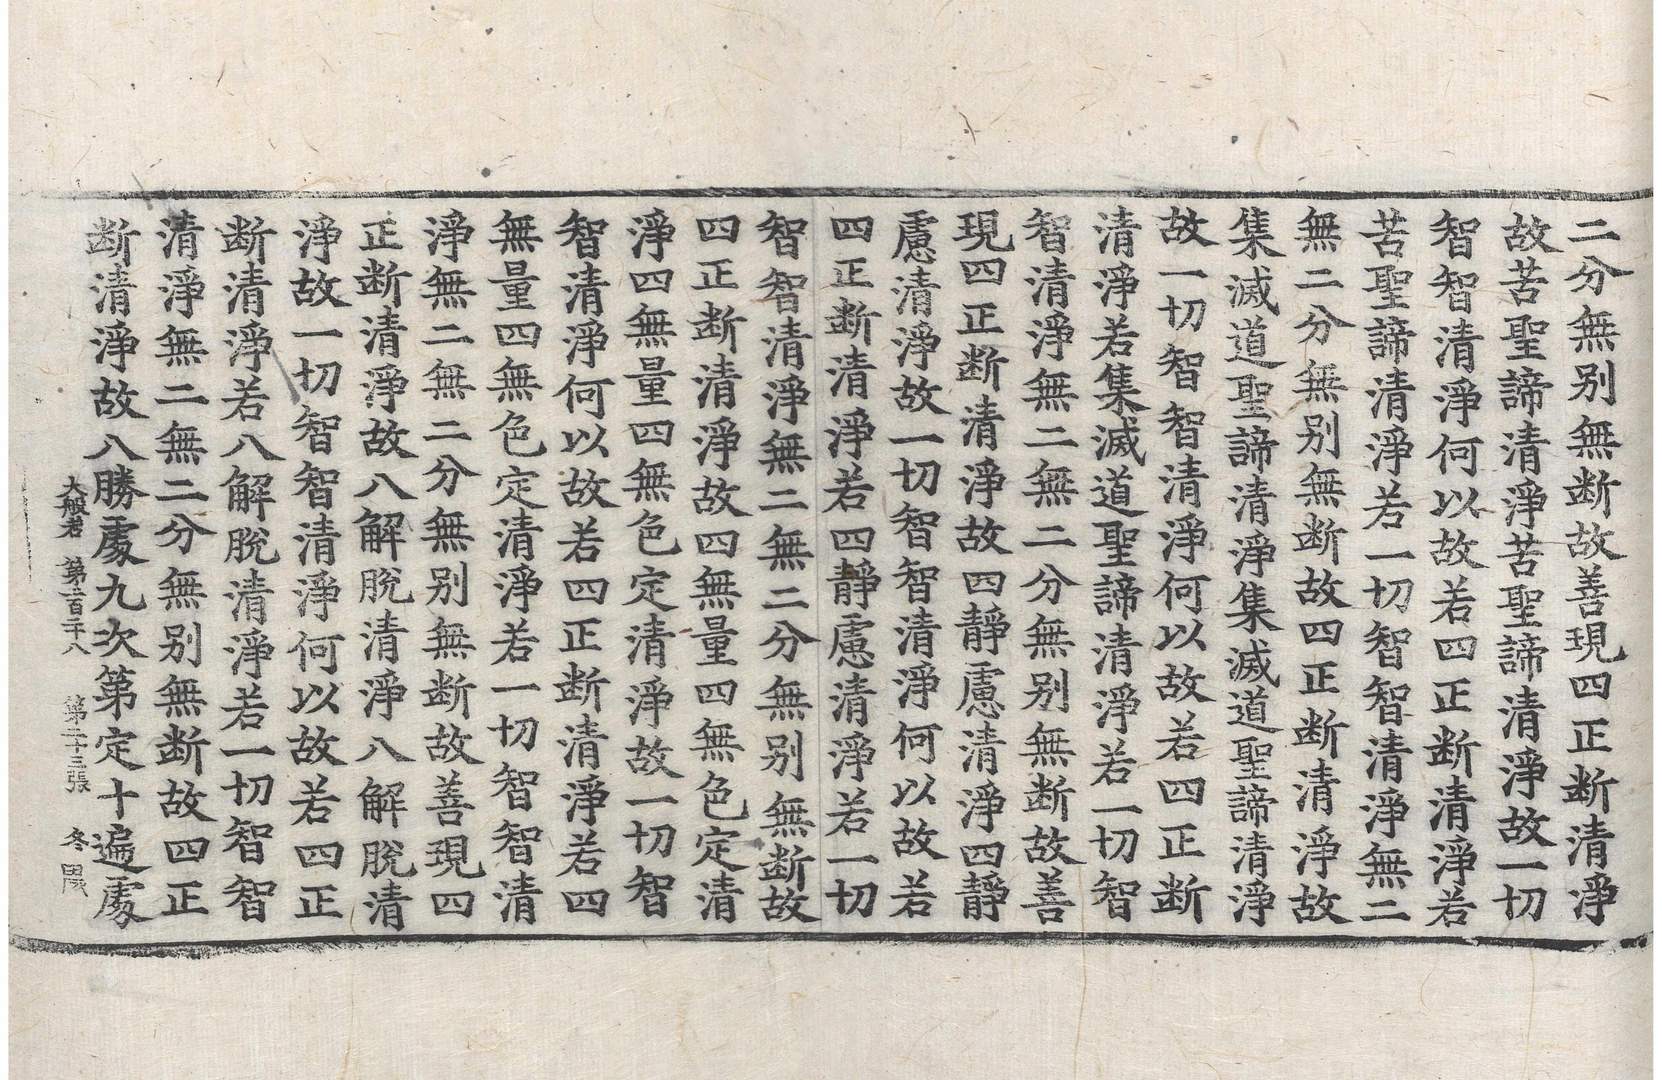 二分無別無断故善現四正断清淨
故苦聖諦清淨苦聖諦清淨故一切
智智清淨何以故若四正断清淨若
苦聖諦清淨若一切智智清淨無二
無二分無別無断故四正断清淨故
集滅道聖諦清淨集滅道聖諦清淨
故一切智智清淨何以故若四正断
清淨若集滅道聖諦清淨若一切智
智清淨無二無二分無別無断故善
現四正断清淨故四靜慮清淨四靜
慮清淨故一切智智清淨何以故若
四正断清淨若四靜慮清淨若一切
智智清淨無二無二分無別無断故
四正断清淨故四無量四無色定清
淨四無量四無色定清淨故一切智
智清淨何以故若四正断清淨若四
無量四無色定清淨若一切智智清
淨無二無二分無別無断故善現四
正断清淨故八解脫清淨八解脫清
淨故一切智智清淨何以故若四正
断清淨若八解脫清淨若一切智智
清淨無二無二分無別無断故四正
断清淨故八勝處九次第定十遍處
大般若 第二百二十八 第二十三張 冬